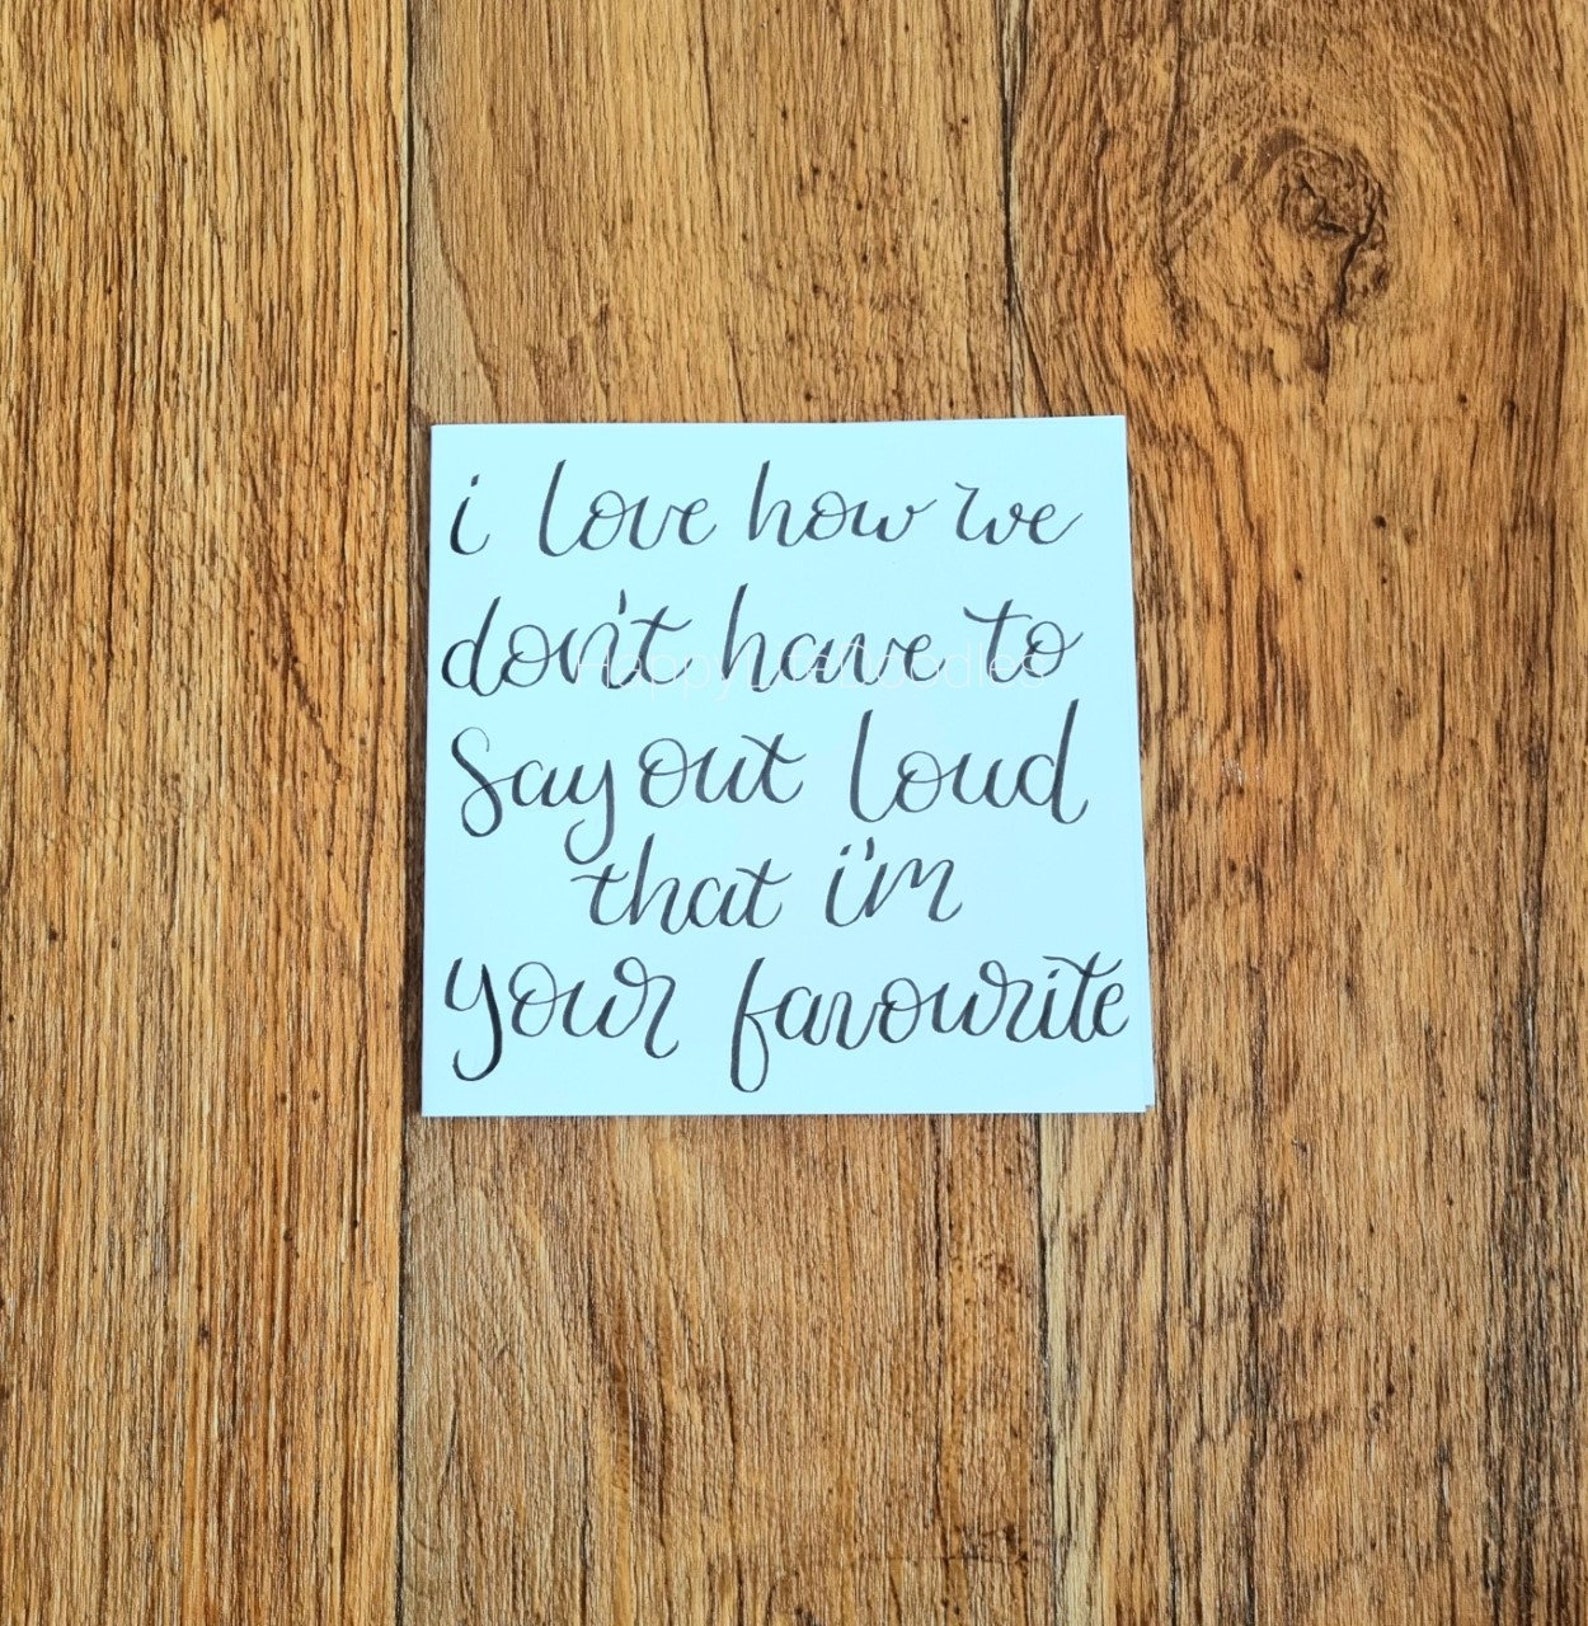 i love how we
don't have to
say out loud
that i'm
your favourite